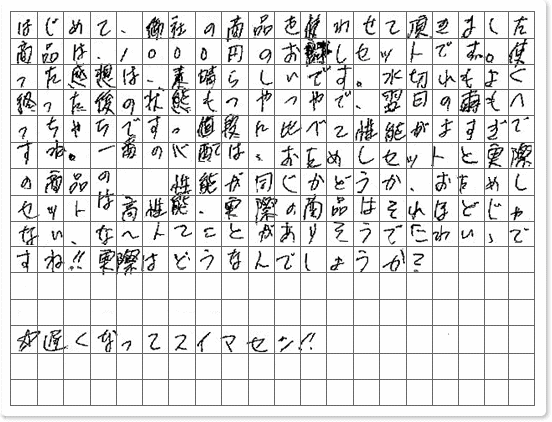 はじめて、御社の商品を使わせて頂きました
商品は、1000円のお試しセットです。使
った感想は、素晴らしいです。水切れもよく
終った後の状態もつやつやで、翌日の霜もへ
っちゃらです。値段に比べて性能がますぎで
すね。一番の心配は、おためしセットと実際
の商品の 性能が同じかどうか、おためし
セットは高性能、実際の商品はそれほどじゃ
ない、な〜んてことがありそうでこわい、で
すね!!実際はどうなんでしょうか?
が遅くなってスイマセン!!